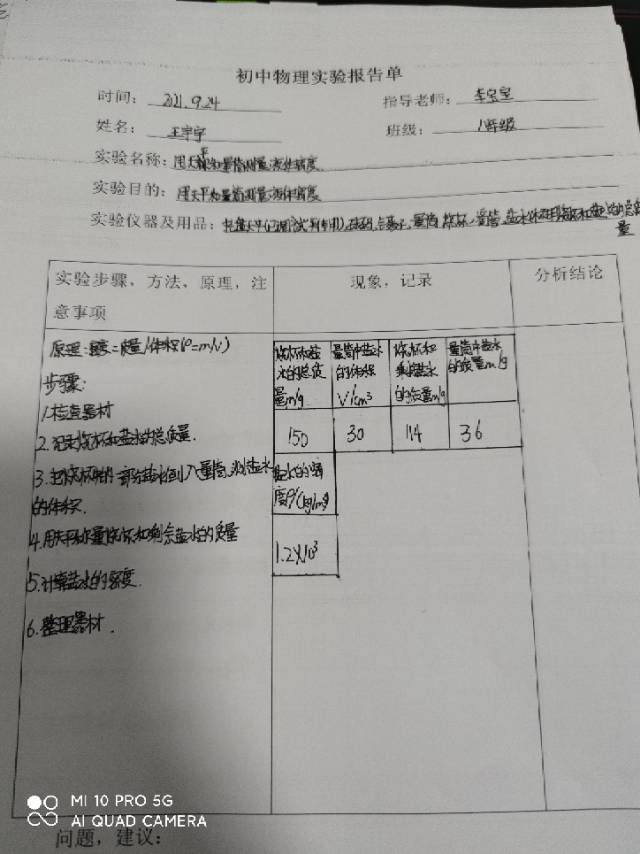 初中物理实验报告单
时间: 2021.9.24 指导老师:
姓名: 王宇宁 班级: 八年级
实验名称: 用天平和量筒测量液体密度
实验目的: 用天平和量筒测量液体密度
实验仪器及用品: 托盘天平(已调试,备用)、量筒、烧杯、
量
实验步骤,方法,原理,注意事项 现象,记录 分析结论
原理:密度=质量/体积(ρ=m/v)
步骤:
1.检查器材
2.记录烧杯和盐水的总质量.
3.把烧杯中的一部分盐水倒入量筒,测盐水
的体积.
4.用天平称量烧杯和剩余盐水的质量
5.计算盐水的密度.
6.整理器材.
烧杯和盐
水的总质
量m/g
量筒中盐水
的体积
V/cm³
烧杯和
剩余盐水
的质量m/g
量筒中盐水
的质量m/g
150 30 114 36
盐水的密
度ρ/(kg/m³)
1.2×10³
问题,建议:
MI 10 PRO 5G
AI QUAD CAMERA